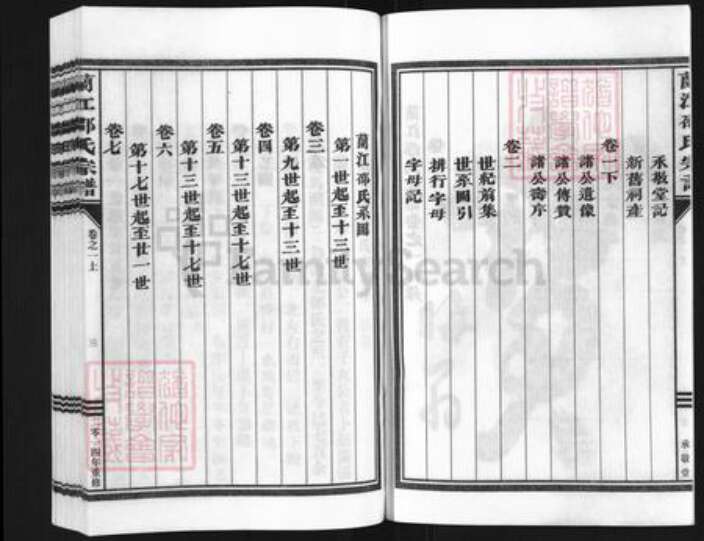 承敬堂記
新舊祠産
卷一下
諸公遺像
諸公傳贊
諸公壽序
卷二
世紀前集
世系圖引
排行字母
字母記
承敬堂
蘭江邵氏系圖
第一世起至十三世
卷三
第九世起至十三世
卷四
第十三世起至十七世
卷五
第十三世起至十七世
卷六
第十七世起至廿一世
卷七
蘭江邵氏宗譜
卷之一上
二零一四年重修
FamilySearch